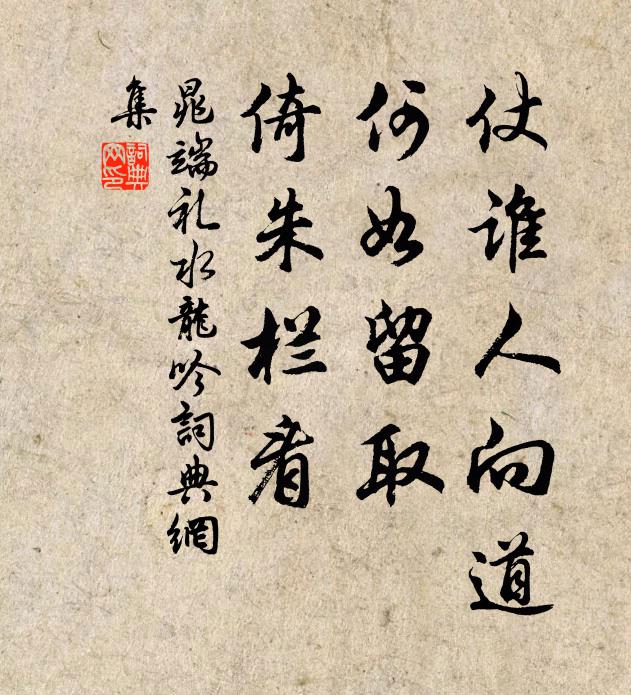 仗谁人向道
何如留取
倚朱栏看
晁端礼水龍吟詞典網
集
詞典
网印